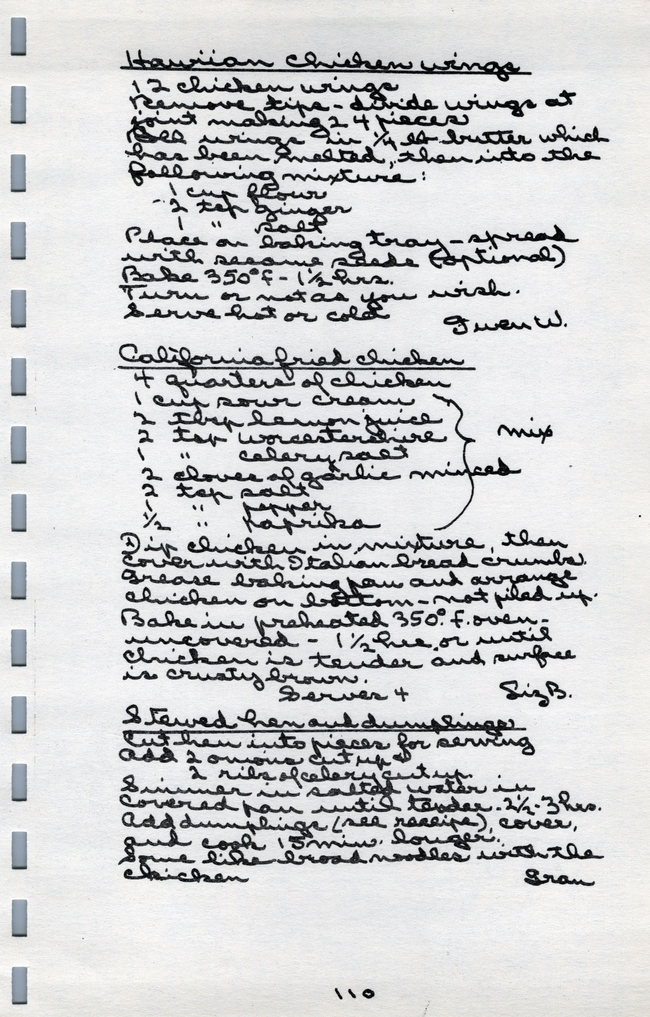 Hawiian chicken wings
12 chicken wings
Remove tips - divide wings at
joint making 24 pieces
Roll wings in 1/4 lb butter which
has been melted, then into the
following mixture:
1 cup flour
2 tsp ginger
1 " salt
Place on baking tray - spread
with sesame seeds (optional)
Bake 350° f - 1 1/2 hrs.
Turn or not as you wish.
Serve hot or cold
Gwen W.
California fried chicken
4 quarters of chicken
1 cup sour cream
2 tbsp lemon juice
2 tsp worcestershire
mix
1 " celery salt
2 cloves of garlic minced
2 tsp salt
1 " pepper
1/2 " paprika
Dip chicken in mixture, then
cover with Italian bread crumbs.
Grease baking pan and arrange
chicken on bottom - not piled up.
Bake in preheated 350° f. oven -
uncovered - 1 1/2 hrs, or until
chicken is tender and surface
is crusty brown.
Serves 4
Liz B.
Stewed hen and dumplings
Cut hen into pieces for serving
Add 2 onions cut up &
2 ribs of celery cut up.
Simmer in salted water in
covered pan until tender - 2 1/2 - 3 hrs.
Add dumplings (see receipe), cover,
and cook 15 min. longer.
Some like broad noodles with the
chicken
Gran
110